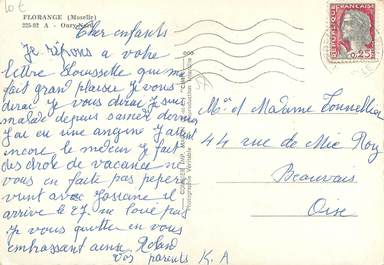 10 €
FLORANGE (Moselle)
225-92 A - Oury-Nord
Cher enfants
Je répons a votre
lettre Loussette que me
fait grand plaisir Je vous
dirai Je vous dirai Je suis
malade depuis samedi dernier
J'ai eu une angine J'attent
encore le medecin Je fait
des drole de vacance ne
vous en faite pas pepere
vient avec Josiane il
arrive le 27 au loué puis
Je vous quitte en vous
embrassant ainsi Roland
Vos parents K. A
REPUBLIQUE FRANÇAISE
0,25
Mr et Madame Tonnellier
44 rue de Mie Roy
Beauvais
Oise